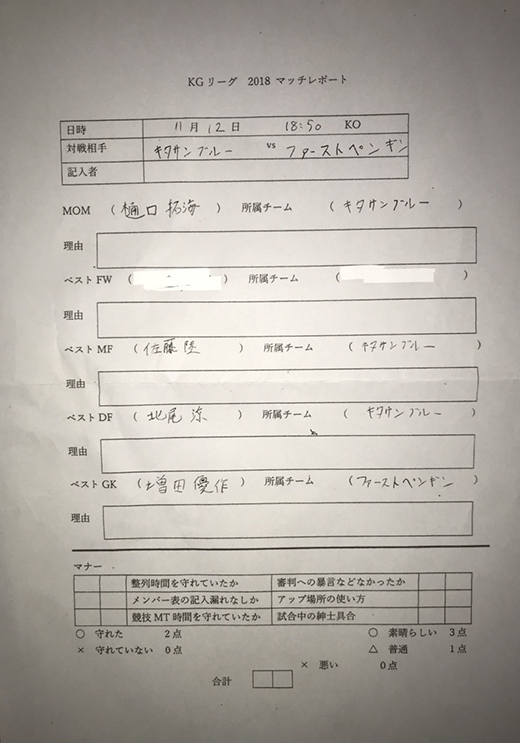 KGリーグ 2018 マッチレポート
日時 11月 12日 18:50 KO
対戦相手 キタサンブルー vs ファーストペンギン
記入者
MOM (樋口 拓海) 所属チーム (キタサンブルー)
理由
ベストFW ( ) 所属チーム ( )
理由
ベストMF (佐藤 陸) 所属チーム (キタサンブルー)
理由
ベストDF (北尾 涼) 所属チーム (キタサンブルー)
理由
ベストGK (増田 優作) 所属チーム (ファーストペンギン)
理由
マナー
整列時間を守れていたか 審判への暴言などなかったか
メンバー表の記入漏れなしか アップ場所の使い方
競技MT時間を守れていたか 試合中の紳士具合
○ 守れた 2点 ○ 素晴らしい 3点
× 守れていない 0点 △ 普通 1点
× 悪い 0点
合計